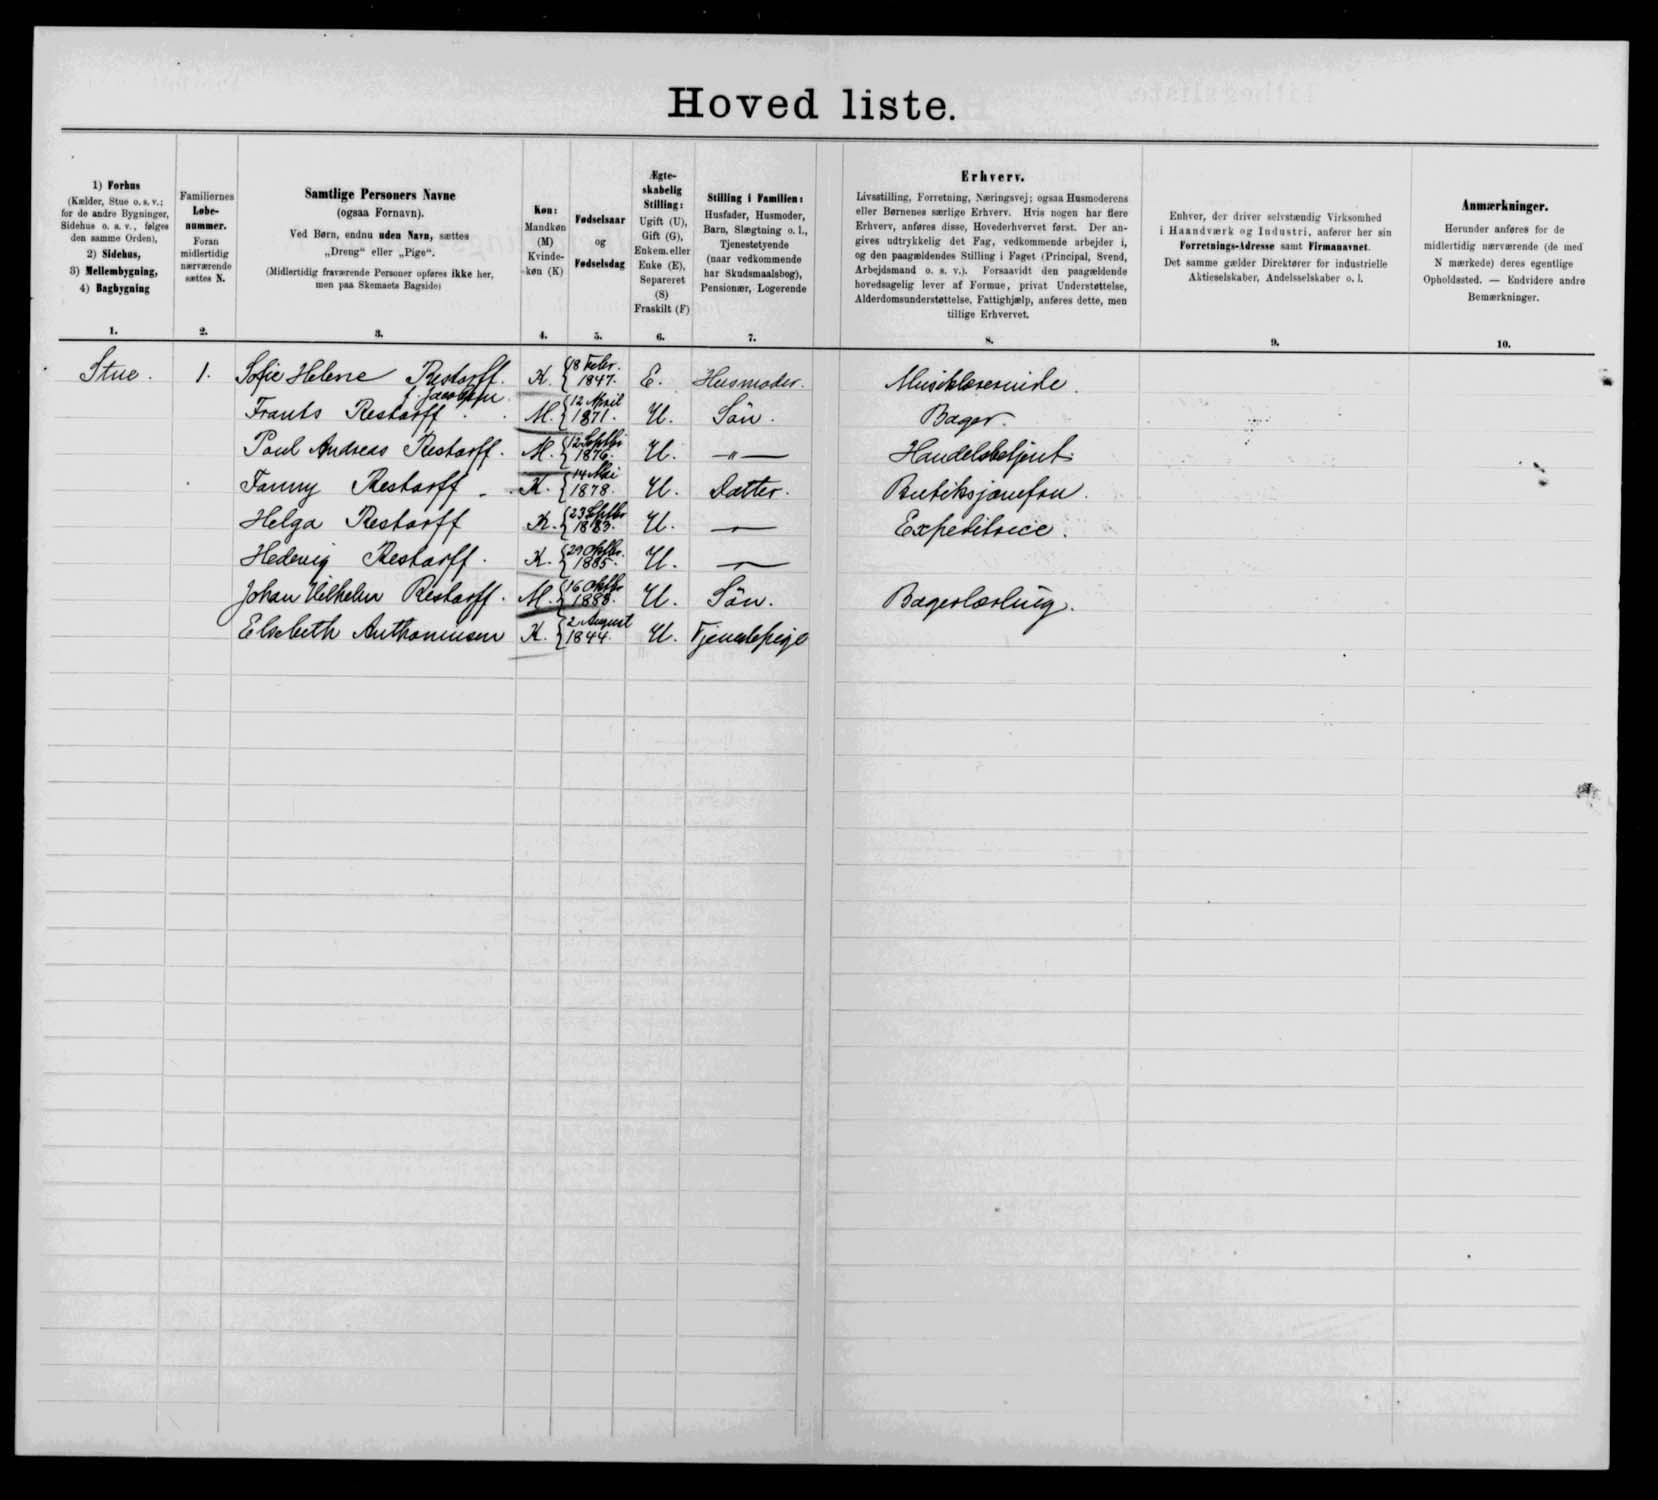 Hoved liste.
1) Forhus
(Kælder, Stue o. s. v.;
for de andre Bygninger,
Sidehus o. s. v., følges
den samme Orden),
2) Sidehus,
3) Mellembygning,
4) Bagbygning
1.
Familiernes
Løbe-
nummer.
Foran
midlertidig
nærværende
sættes N.
2.
Samtlige Personers Navne
(ogsaa Fornavn).
Ved Børn, endnu uden Navn, sættes
„Dreng“ eller „Pige“.
(Midlertidig fraværende Personer opføres ikke her,
men paa Skemaets Bagside)
3.
Køn:
Mandkøn
(M)
Kvinde-
køn (K)
4.
Fødselsaar
og
Fødselsdag
5.
Ægte-
skabelig
Stilling:
Ugift (U),
Gift (G),
Enkem. eller
Enke (E),
Separeret
(S)
Fraskilt (F)
6.
Stilling i Familien:
Husfader, Husmoder,
Barn, Slægtning o. l.,
Tjenestetyende
(naar vedkommende
har Skudsmaalsbog),
Pensionær, Logerende
7.
Erhverv.
Livsstilling, Forretning, Næringsvej; ogsaa Husmoderens
eller Børnenes særlige Erhverv. Hvis nogen har flere
Erhverv, anføres disse, Hovederhvervet først. Der an-
gives udtrykkelig det Fag, vedkommende arbejder i,
og den paagældendes Stilling i Faget (Principal, Svend,
Arbejdsmand o. s. v.). Forsaavidt den paagældende
hovedsagelig lever af Formue, privat Understøttelse,
Alderdomsunderstøttelse, Fattighjælp, anføres dette, men
tillige Erhvervet.
8.
Enhver, der driver selvstændig Virksomhed
i Haandværk og Industri, anfører her sin
Forretnings-Adresse samt Firmanavnet.
Det samme gælder Direktører for industrielle
Aktieselskaber, Andelsselskaber o. l.
9.
Anmærkninger.
Herunder anføres for de
midlertidig nærværende (de med
N mærkede) deres egentlige
Opholdssted. — Endvidere andre
Bemærkninger.
10.
Stue. 1. Sofie Helene Restorff. K. 18 Febr. 1847. E. Husmoder. Musiklærerinde.
f. Jacobsen
Frants Restorff. M. 12 April 1871. U. Sön. Bager.
Poul Andreas Restorff. M. 12 Septbr 1876. U. —"— Handelsbetjent.
Fanny Restorff. K. 14 Mai 1878. U. Datter. Butiksjomfru.
Helga Restorff K. 23 Septbr 1883. U. — Expeditrice.
Hedevig Restorff. K. 29 Oktbr. 1885. U. —
Johan Vilhelm Restorff. M. 16 Oktbr 1888. U. Sön. Bagerlærling.
Elsebeth Anthoniusen K. 2 August 1844. U. Tjenestepige